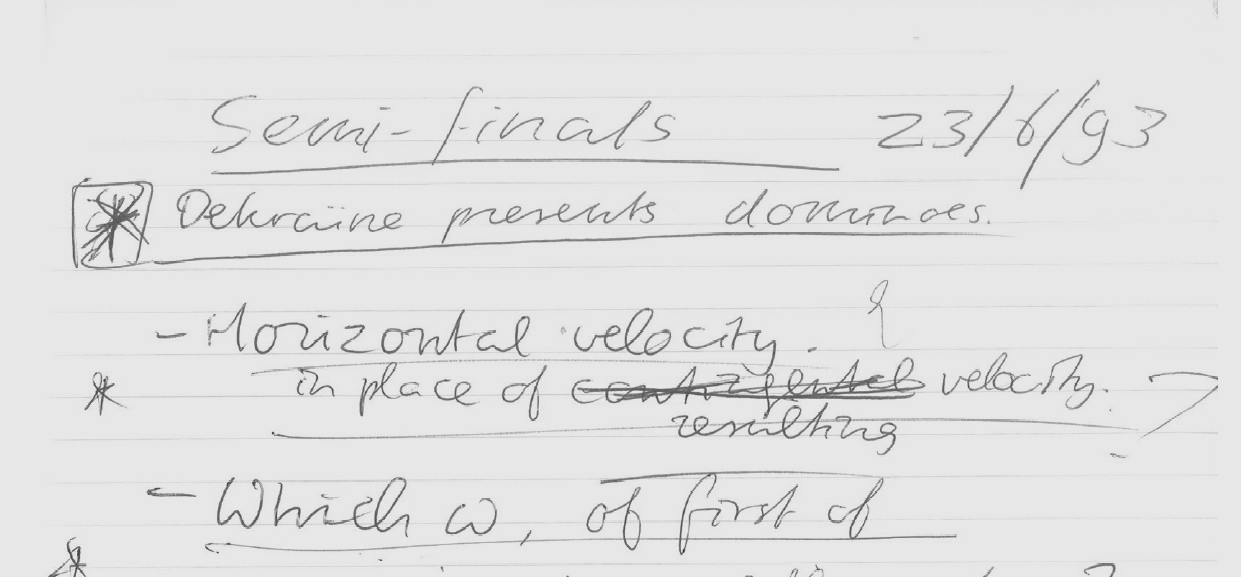 Semi-finals 23/6/93
* Dekraine presents dominoes.
- Horizontal velocity.
* in place of velocity.
resulting
- Which ω, of first of
*